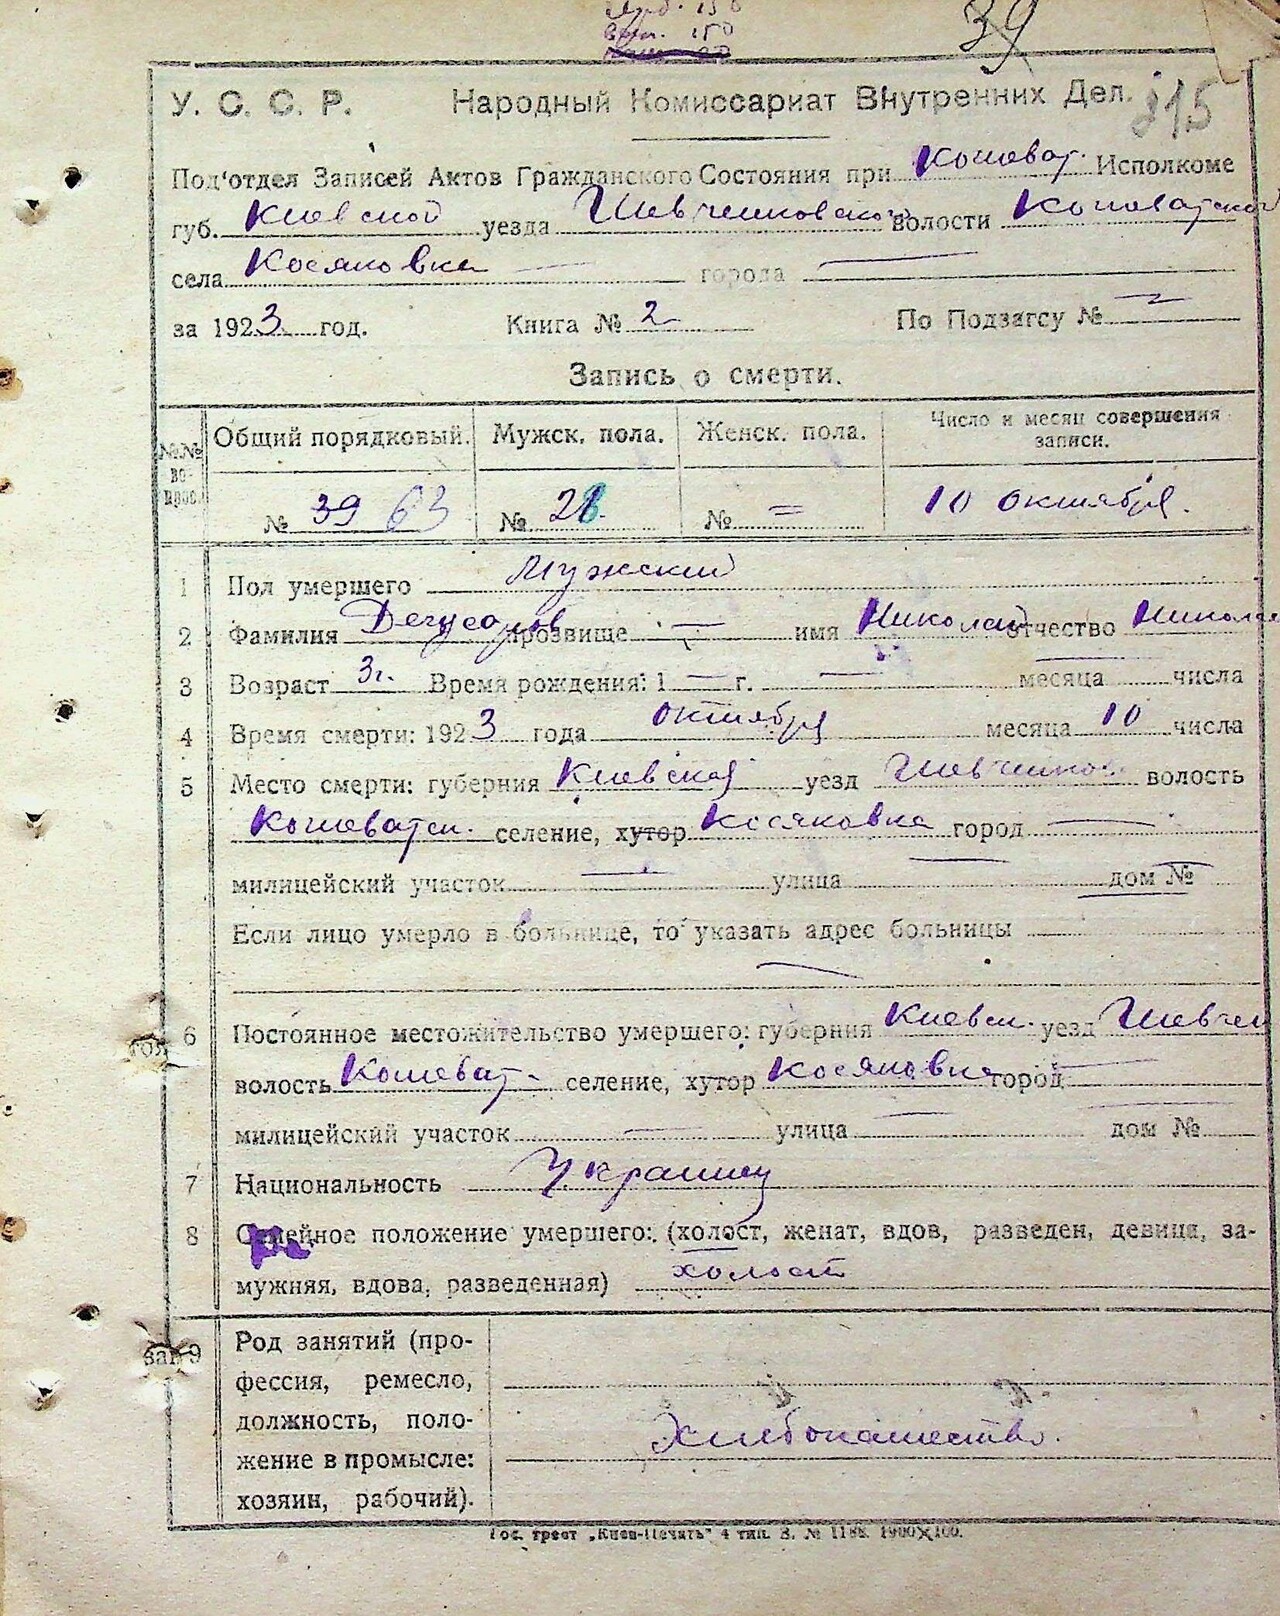 150
вып. 150
39
У. С. С. Р. Народный Комиссариат Внутренних Дел. 215
Под'отдел Записей Актов Гражданского Состояния при Кошеват. Исполкоме
губ. Киевской уезда Шевченковского волости Кошеватской
села Косяковка — города —
за 1923 год. Книга № 2 По Подзагсу № —
Запись о смерти.
№№ вопрос. Общий порядковый. Мужск. пола. Женск. пола. Число и месяц совершения записи.
№ 39 63 № 28. № = 10 октября.
1 Пол умершего Мужский
2 Фамилия прозвище — имя Николай отчество Никола
3 Возраст 3 г. Время рождения: 1 — г. — месяца числа
4 Время смерти: 1923 года октября месяца 10 числа
5 Место смерти: губерния Киевская уезд Шевченков. волость
Кошеватск. селение, хутор Косяковка город —
милицейский участок — улица — дом №
Если лицо умерло в больнице, то указать адрес больницы
—
6 Постоянное местожительство умершего: губерния Киевск. уезд Шевчен
волость Кошеват. селение, хутор Косяковка город —
милицейский участок — улица — дом №
7 Национальность Украинец
8 Семейное положение умершего: (холост, женат, вдов, разведен, девица, за-
мужняя, вдова, разведенная) холост
9 Род занятий (про-
фессия, ремесло,
должность, поло-
жение в промысле:
хозяин, рабочий).
Хлебопашество.
Гос. трест „Киев-Печать" 4 тип. З. № 1188. 1900×100.